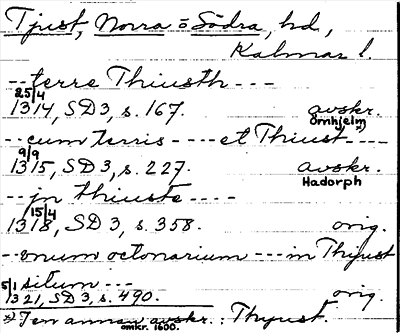 Tjust, Norra o Södra, hd,
Kalmar l.
-- terre Thiusth ---
25/4
1314, SD 3, s. 167. avskr.
Örnhjelm x)
-- cum terris ---- et Thiust ----
9/9
1315, SD 3, s. 227. avskr.
Hadorph
-- jn thiuste ----
15/4
1318, SD 3, s. 358. orig.
--- vnum octonarium --- in Thjust
situm ---
5/1
1321, SD 3, s. 490. orig.
x) I en annan avskr. : Thyust.
omkr. 1600.